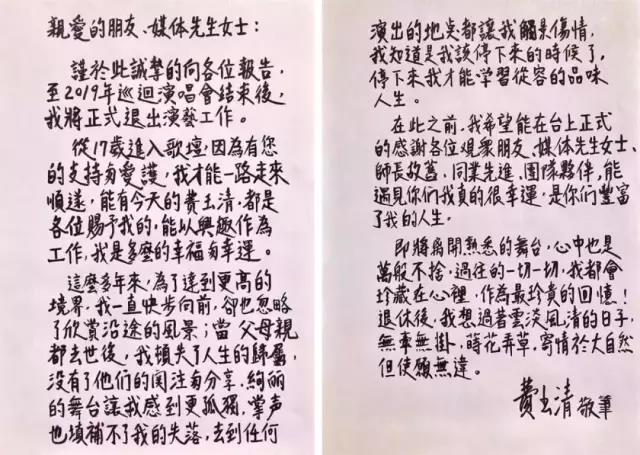 親愛的朋友、媒体先生女士：
謹於此誠摯的向各位報告，
至2019年巡迴演唱會結束後，
我將正式退出演藝工作。
從17歲進入歌壇，因為有您
的支持與愛護，我才能一路走來
順遂，能有今天的費玉清，都是
各位賜予我的，能以興趣作為
工作，我是多麼的幸福與幸運。
這麼多年來，為了達到更高的
境界，我一直快步向前，卻也忽略
了欣賞沿途的風景；當父母親
都去世後，我頓失了人生的歸屬，
沒有了他們的関注與分享，絢麗
的舞台讓我感到更孤獨，掌声
也填補不了我的失落，去到任何
演出的地点都讓我觸景傷情，
我知道是我該停下來的時候了，
停下來我才能學習從容的品味
人生。
在此之前，我希望能在台上正式
的感謝各位現眾朋友、媒体先生女士、
師長故舊、同業先進、團隊夥伴，能
遇見你們我真的很幸運，是你們豐富
了我的人生。
即將離開熟悉的舞台，心中也是
萬般不捨，過往的一切一切，我都會
珍藏在心裡，作為最珍貴的回憶！
退休後，我想過著雲淡風清的日子，
無牽無掛，蒔花弄草，寄情於大自然
但使願無違。
費玉清 敬筆